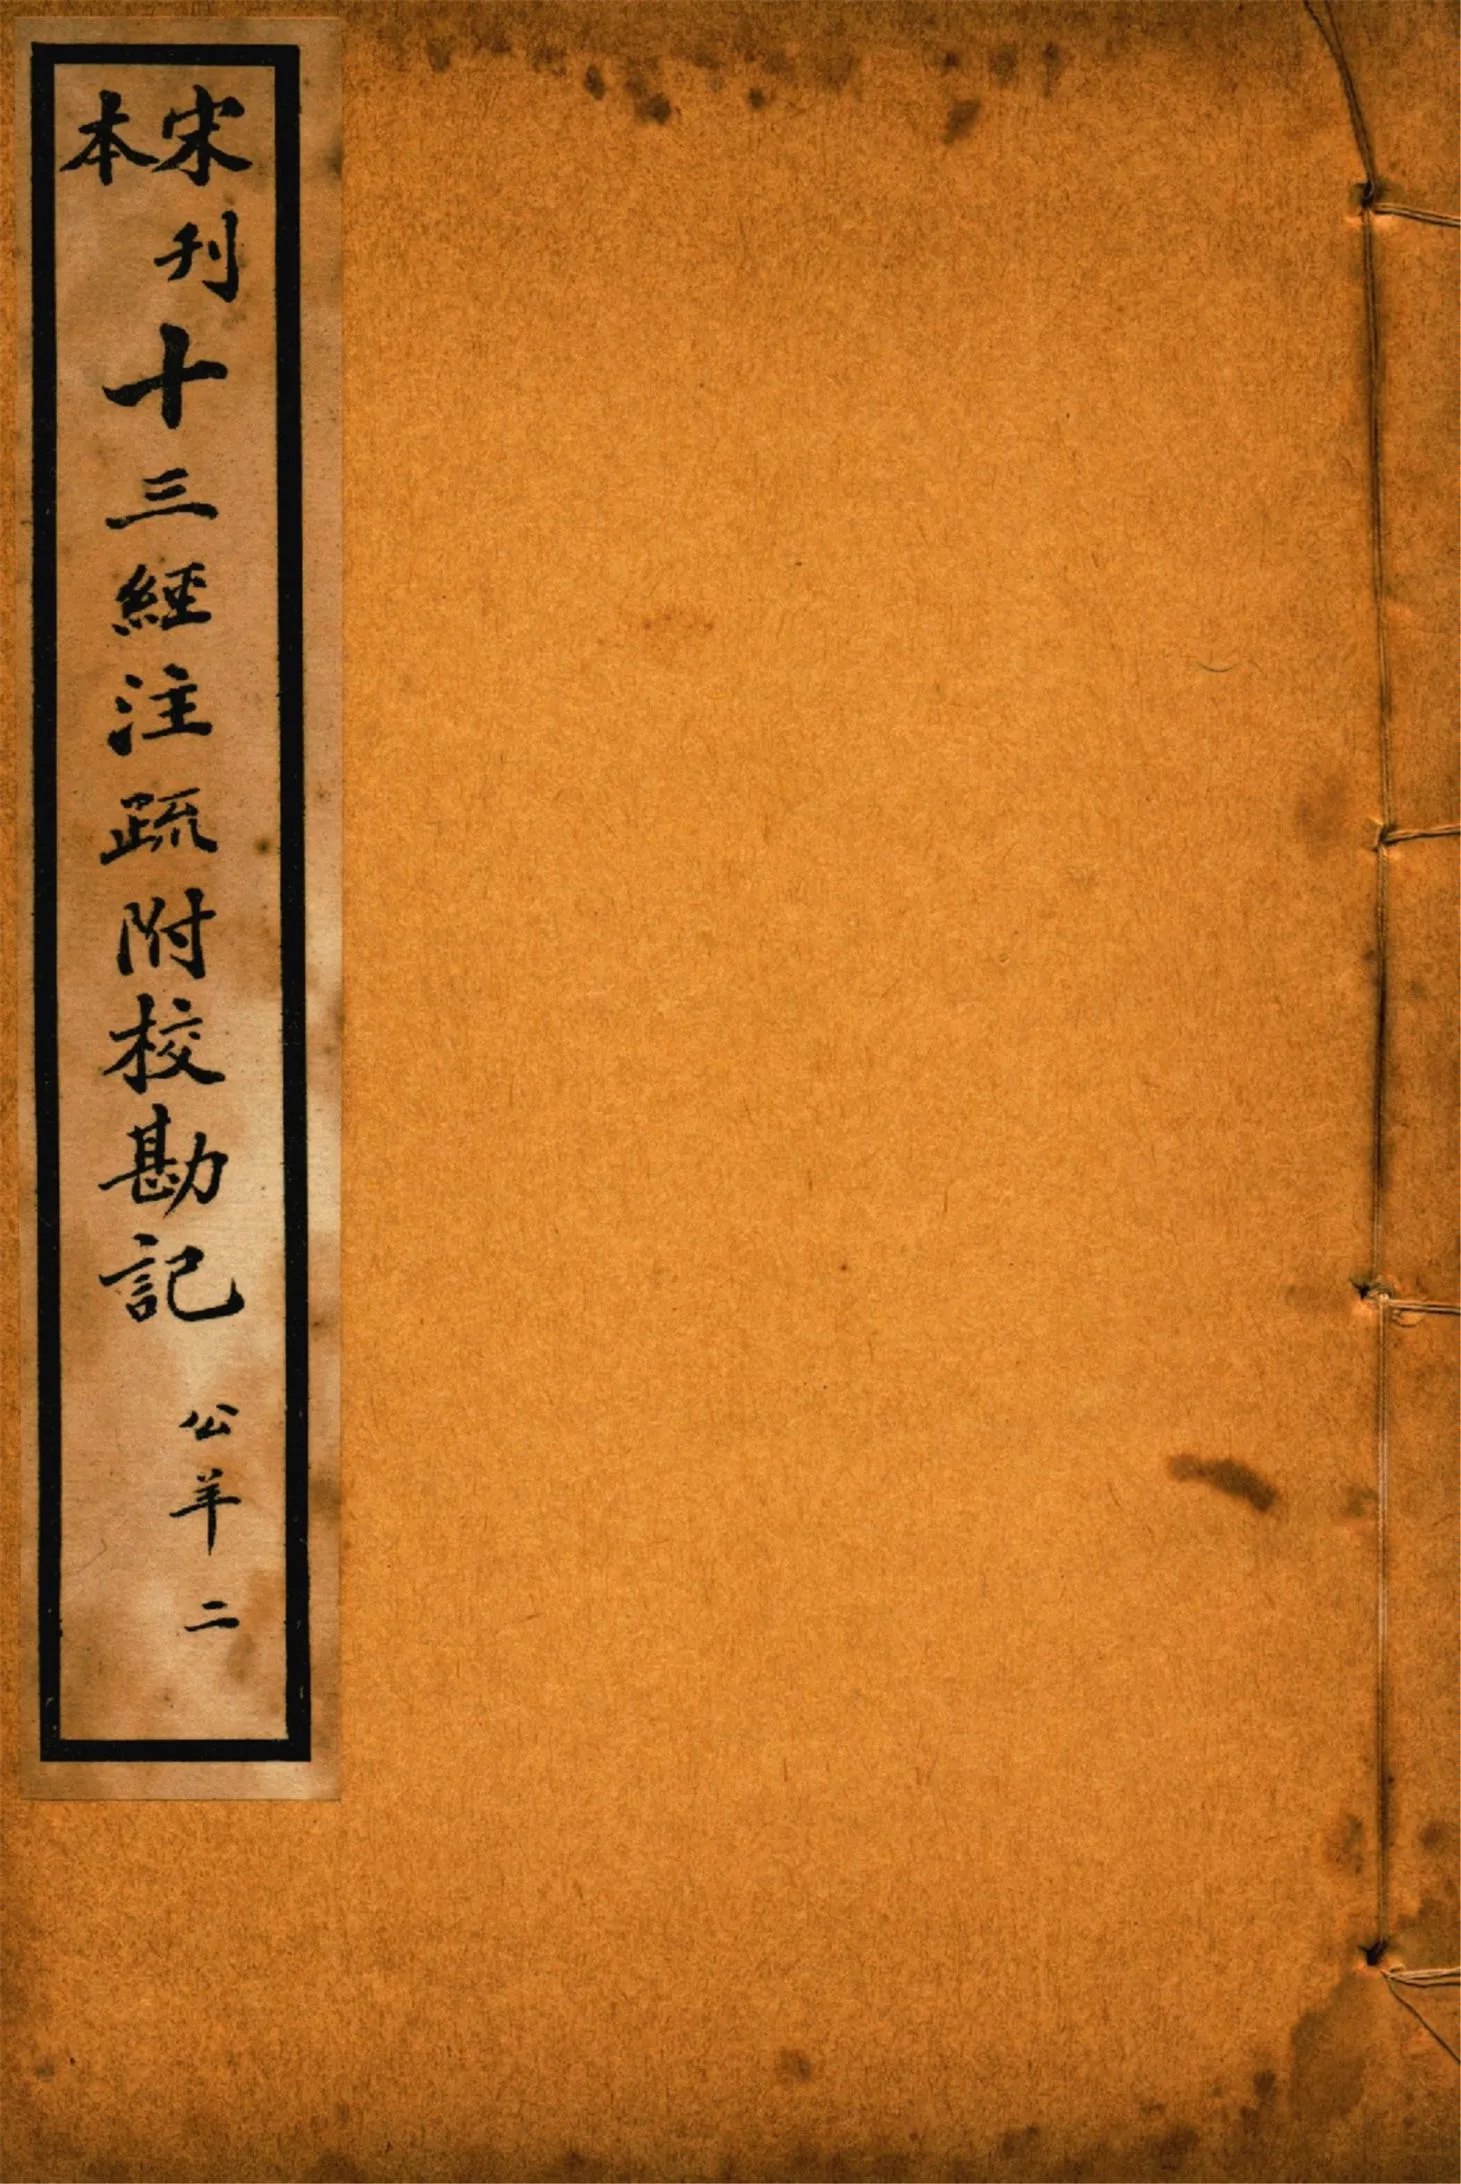 宋刊本
十三經注疏附校勘記
公羊二